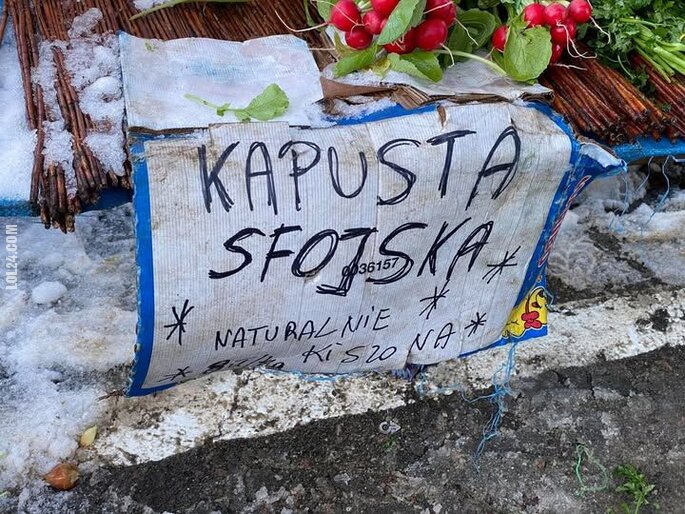 KAPUSTA
SFOJSKA
0036157
* NATURALNIE * *
* KiSZONA
LOL24.COM